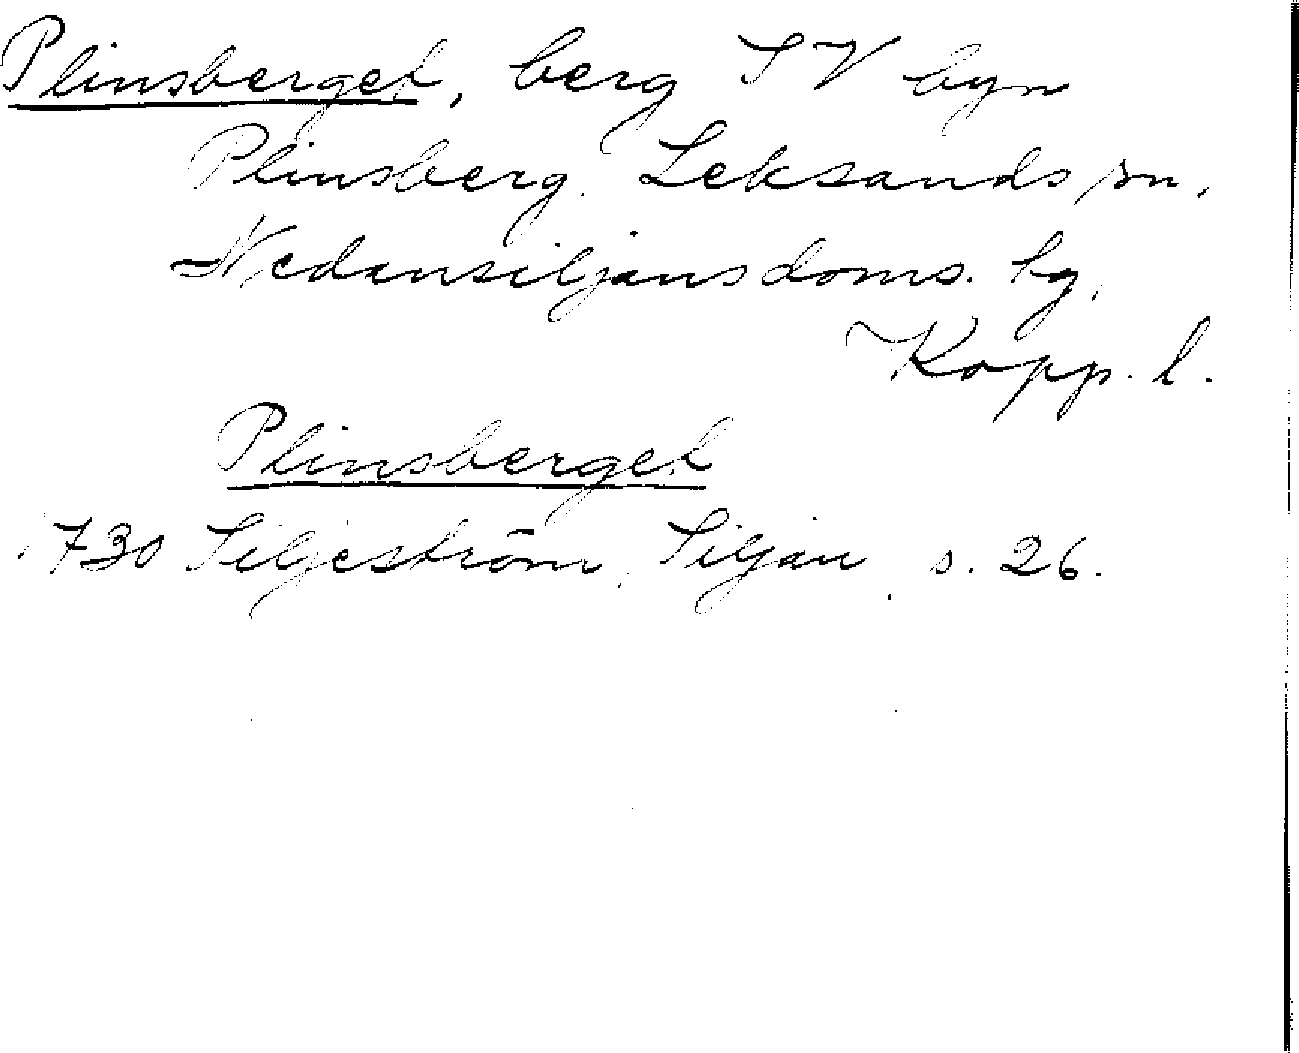 Plinsberget, berg SV byn
Plinsberg, Leksands sn,
Nedansiljans doms. hg,
Kopp. l.
Plinsberget
1730 Siljeström, Siljan, s. 26.